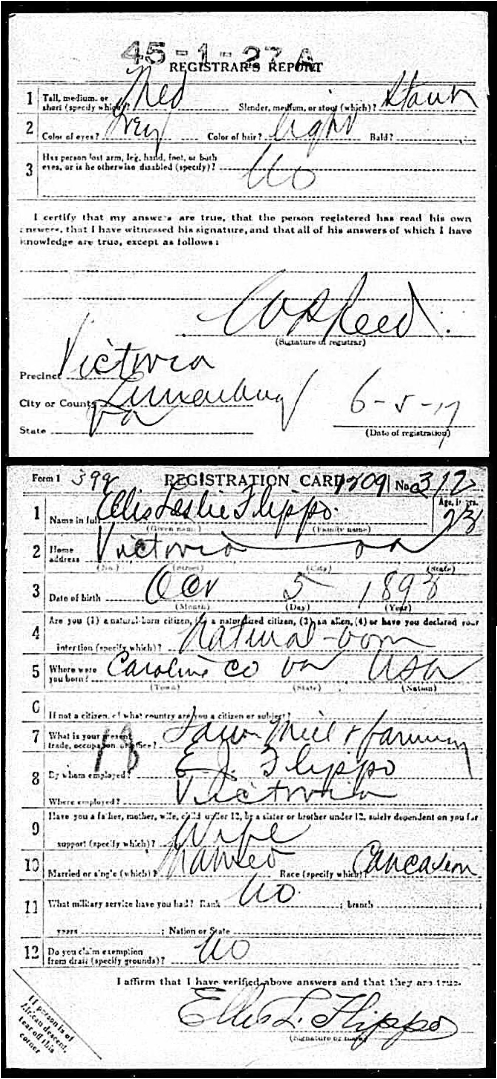 45-1-27 A
REGISTRAR'S REPORT
1 Tall, medium, or short (specify which)? Med Slender, medium, or stout (which)? Stout
2 Color of eyes? Grey Color of hair? Light Bald?
3 Has person lost arm, leg, hand, foot, or both
eyes, or is he otherwise disabled (specify)? No
I certify that my answers are true, that the person registered has read his own
answers, that I have witnessed his signature, and that all of his answers of which I have
knowledge are true, except as follows:
(Signature of registrar)
Precinct Victoria
City or County Lunenburg 6-5-17
State Va (Date of registration)
Form 1 398 REGISTRATION CARD 1809 No. 312
1 Name in full Ellis Leslie Flippo Age, in yrs. 23
(Given name) (Family name)
2 Home address Victoria Va
(No.) (Street) (City) (State)
3 Date of birth Oct 5 1893
(Month) (Day) (Year)
4 Are you (1) a natural-born citizen, (2) a naturalized citizen, (3) an alien, (4) or have you declared your
intention (specify which)? Natural-born
5 Where were you born? Caroline Co Va USA
(Town) (State) (Nation)
6 If not a citizen, of what country are you a citizen or subject?
7 What is your present trade, occupation, or office? Saw Mill & farming
8 By whom employed? E J Flippo
Where employed? Victoria
9 Have you a father, mother, wife, child under 12, or a sister or brother under 12, solely dependent on you for
support (specify which)? Wife
10 Married or single (which)? Married Race (specify which)? Caucasian
11 What military service have you had? Rank No ; branch
years ; Nation or State
12 Do you claim exemption from draft (specify grounds)? No
I affirm that I have verified above answers and that they are true.
Ellis L. Flippo
(Signature or mark)
If person is of
African descent,
tear off this
corner